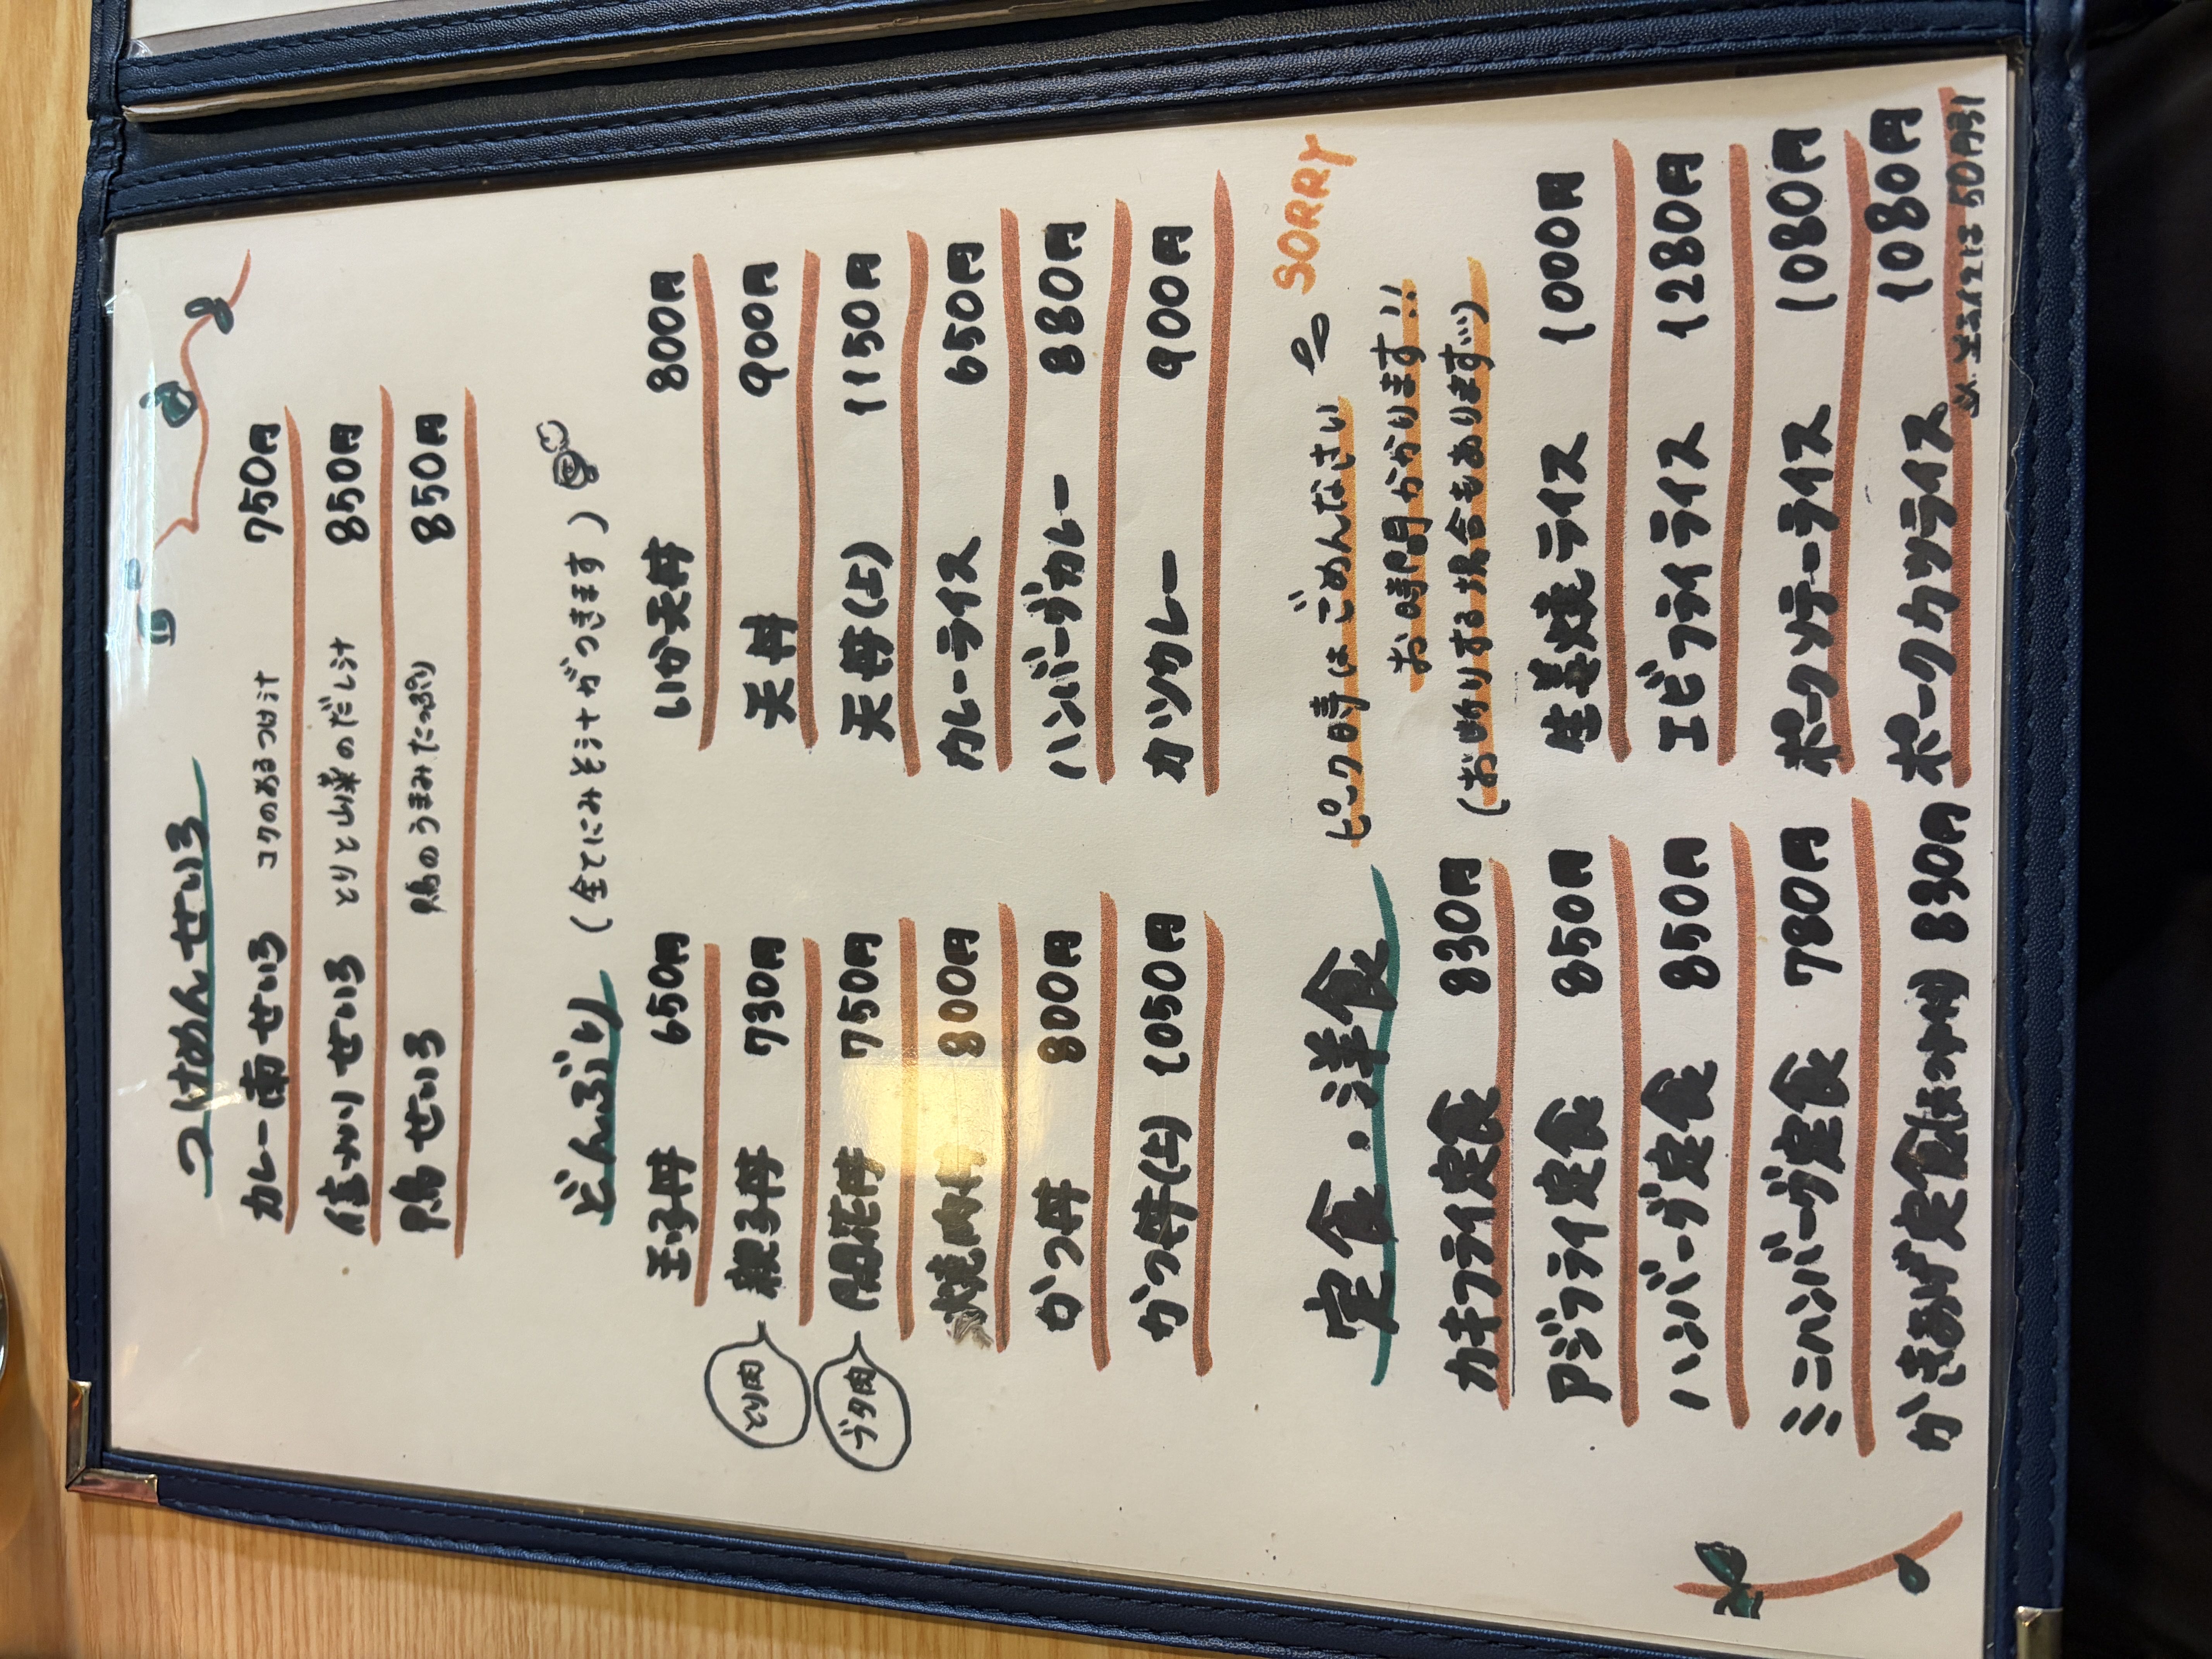 つけめんせいろ
カレー南せいろ コクのあるつけ汁 750円
信づくりせいろ とりと山菜のだし汁 850円
鴨せいろ 鴨のうまみたっぷり 850円
どんぶり (全てにみそ汁がつきます)
玉子丼 650円
とり肉
親子丼 730円
ブタ肉
開花丼 750円
焼肉丼 800円
かつ丼 800円
かつ丼(上) 1050円
いか天丼 800円
天丼 900円
天丼(上) 1150円
カレーライス 650円
ハンバーグカレー 880円
カツカレー 900円
定食・洋食
ピーク時はごめんなさい SORRY
お時間かかります!!
(お断りする場合もあります…)
カキフライ定食 830円
アジフライ定食 850円
ハンバーグ定食 850円
ミニハンバーグ定食 780円
かきあげ定食 830円
生姜焼ライス 1000円
エビフライライス 1280円
ポークソテーライス 1080円
ポークカツライス 1080円
50円引